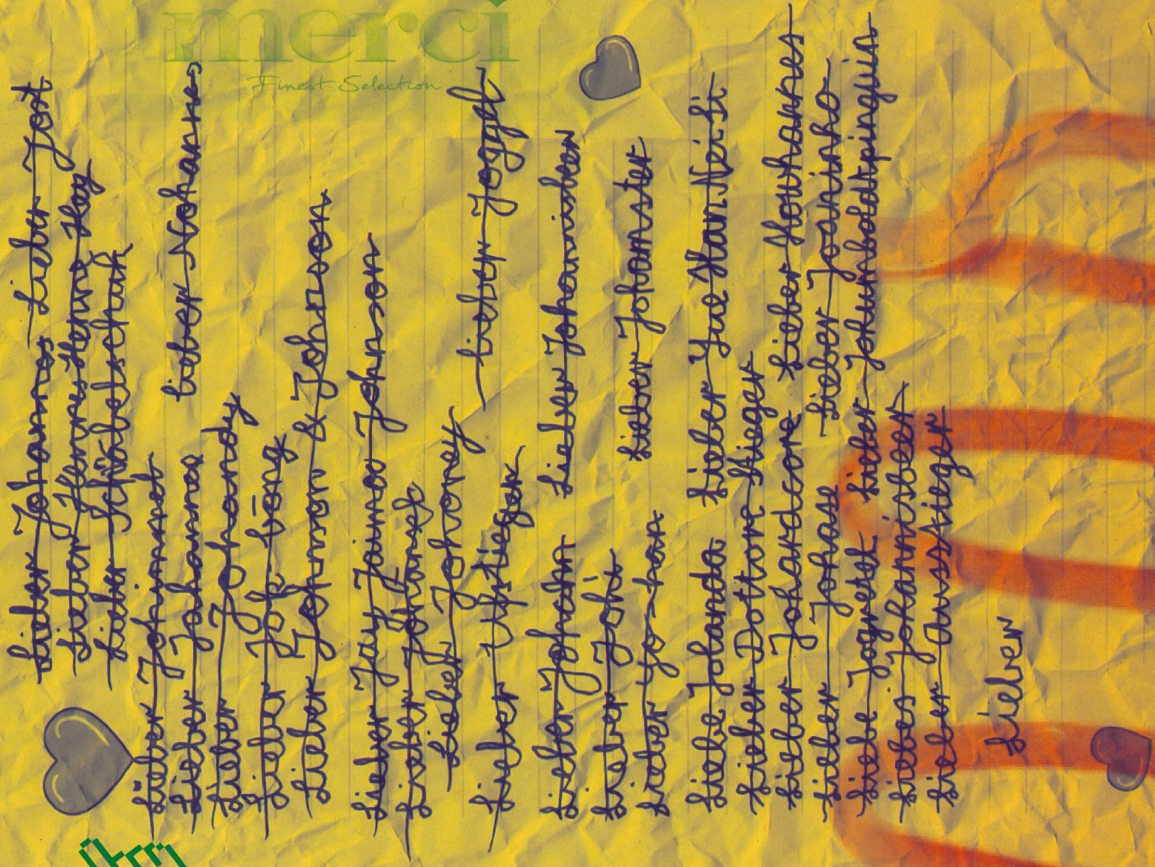 merci
Finest Selection
Lieber Johannes Lieber Jost
Lieber Henns Henno Hey
Lieber Schöbelschuh
Lieber Johannes
Lieber Johanna Lieber Nohannes
Lieber Johandy
Lieber Joh bong
Lieber Johnson & Johnson
Lieber Jay Jaymo Johnson
Lieber Johans
Lieber Johoney
Lieber Upstieger Lieber Joggel
Lieber Johahn Lieber Johannisbeer
Lieber Johi
Lieber Yo-han Lieber Johamster
Liebe Johanda Lieber Yue Han Nei-ti
Lieber Dottore Stieger
Lieber Johardcore Lieber Houhannes
Lieber Johase Lieber Josninho
Liebe Jogretel Lieber Johumboldtpinguin
Liebes Johannisbeer
Lieber Ausssieger
Lieber